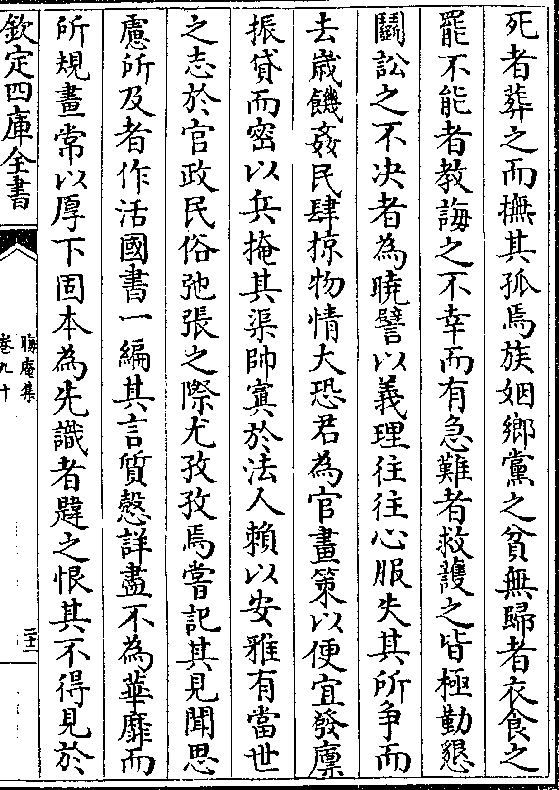 死者葬之而撫其孤焉族姻鄉黨之貧無歸者衣食之
罷不能者教誨之不幸而有急難者救護之皆極勤懇
鬬訟之不决者為曉譬以義理往往心服失其所争而
去歳饑姦民肆掠物情大恐君為官畫策以便宜發廪
振貸而密以兵掩其渠帥寘於法人賴以安雅有當世
之志於官政民俗弛張之際尤孜孜焉嘗記其見聞思
慮所及者作活國書一編其言質慤詳盡不為華靡而
所規畫常以厚下固本為先識者韙之恨其不得見於
欽定四庫全書
晦庵集
卷九十
二十三